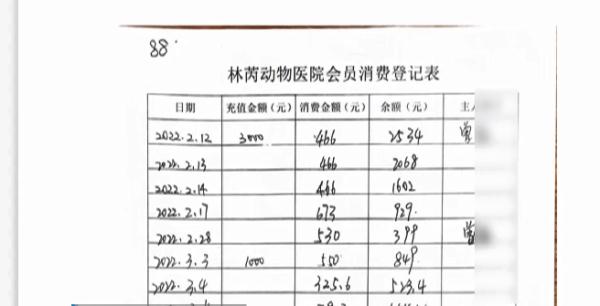 88.
林芮动物医院会员消费登记表
日期 充值金额(元) 消费金额(元) 余额(元) 主
2022.2.12 3000 466 2534 曾
2022.2.13 466 2068
2022.2.14 466 1602
2022.2.17 673 929.
2022.2.28 530 399 曾
2022.3.3 1000 550 849
2022.3.4 325.6 523.4